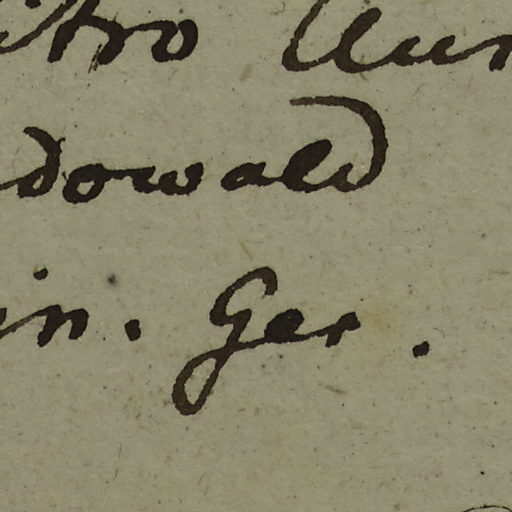 itro Uun
dowald
in. Ger.